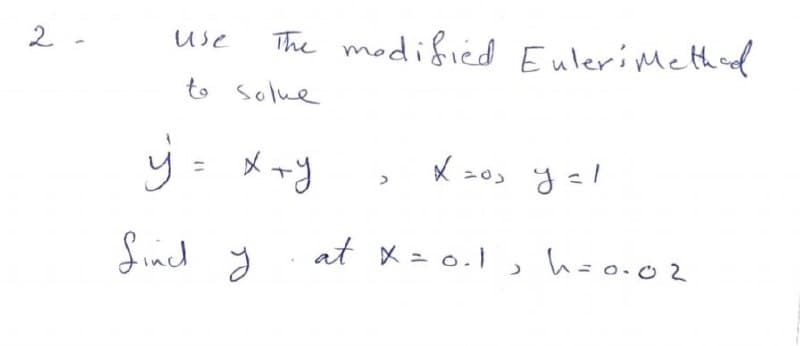 2 - Use The modified Euler's Method
to solve
y' = x+y , x=0, y=1
find y at x = 0.1, h=0.02